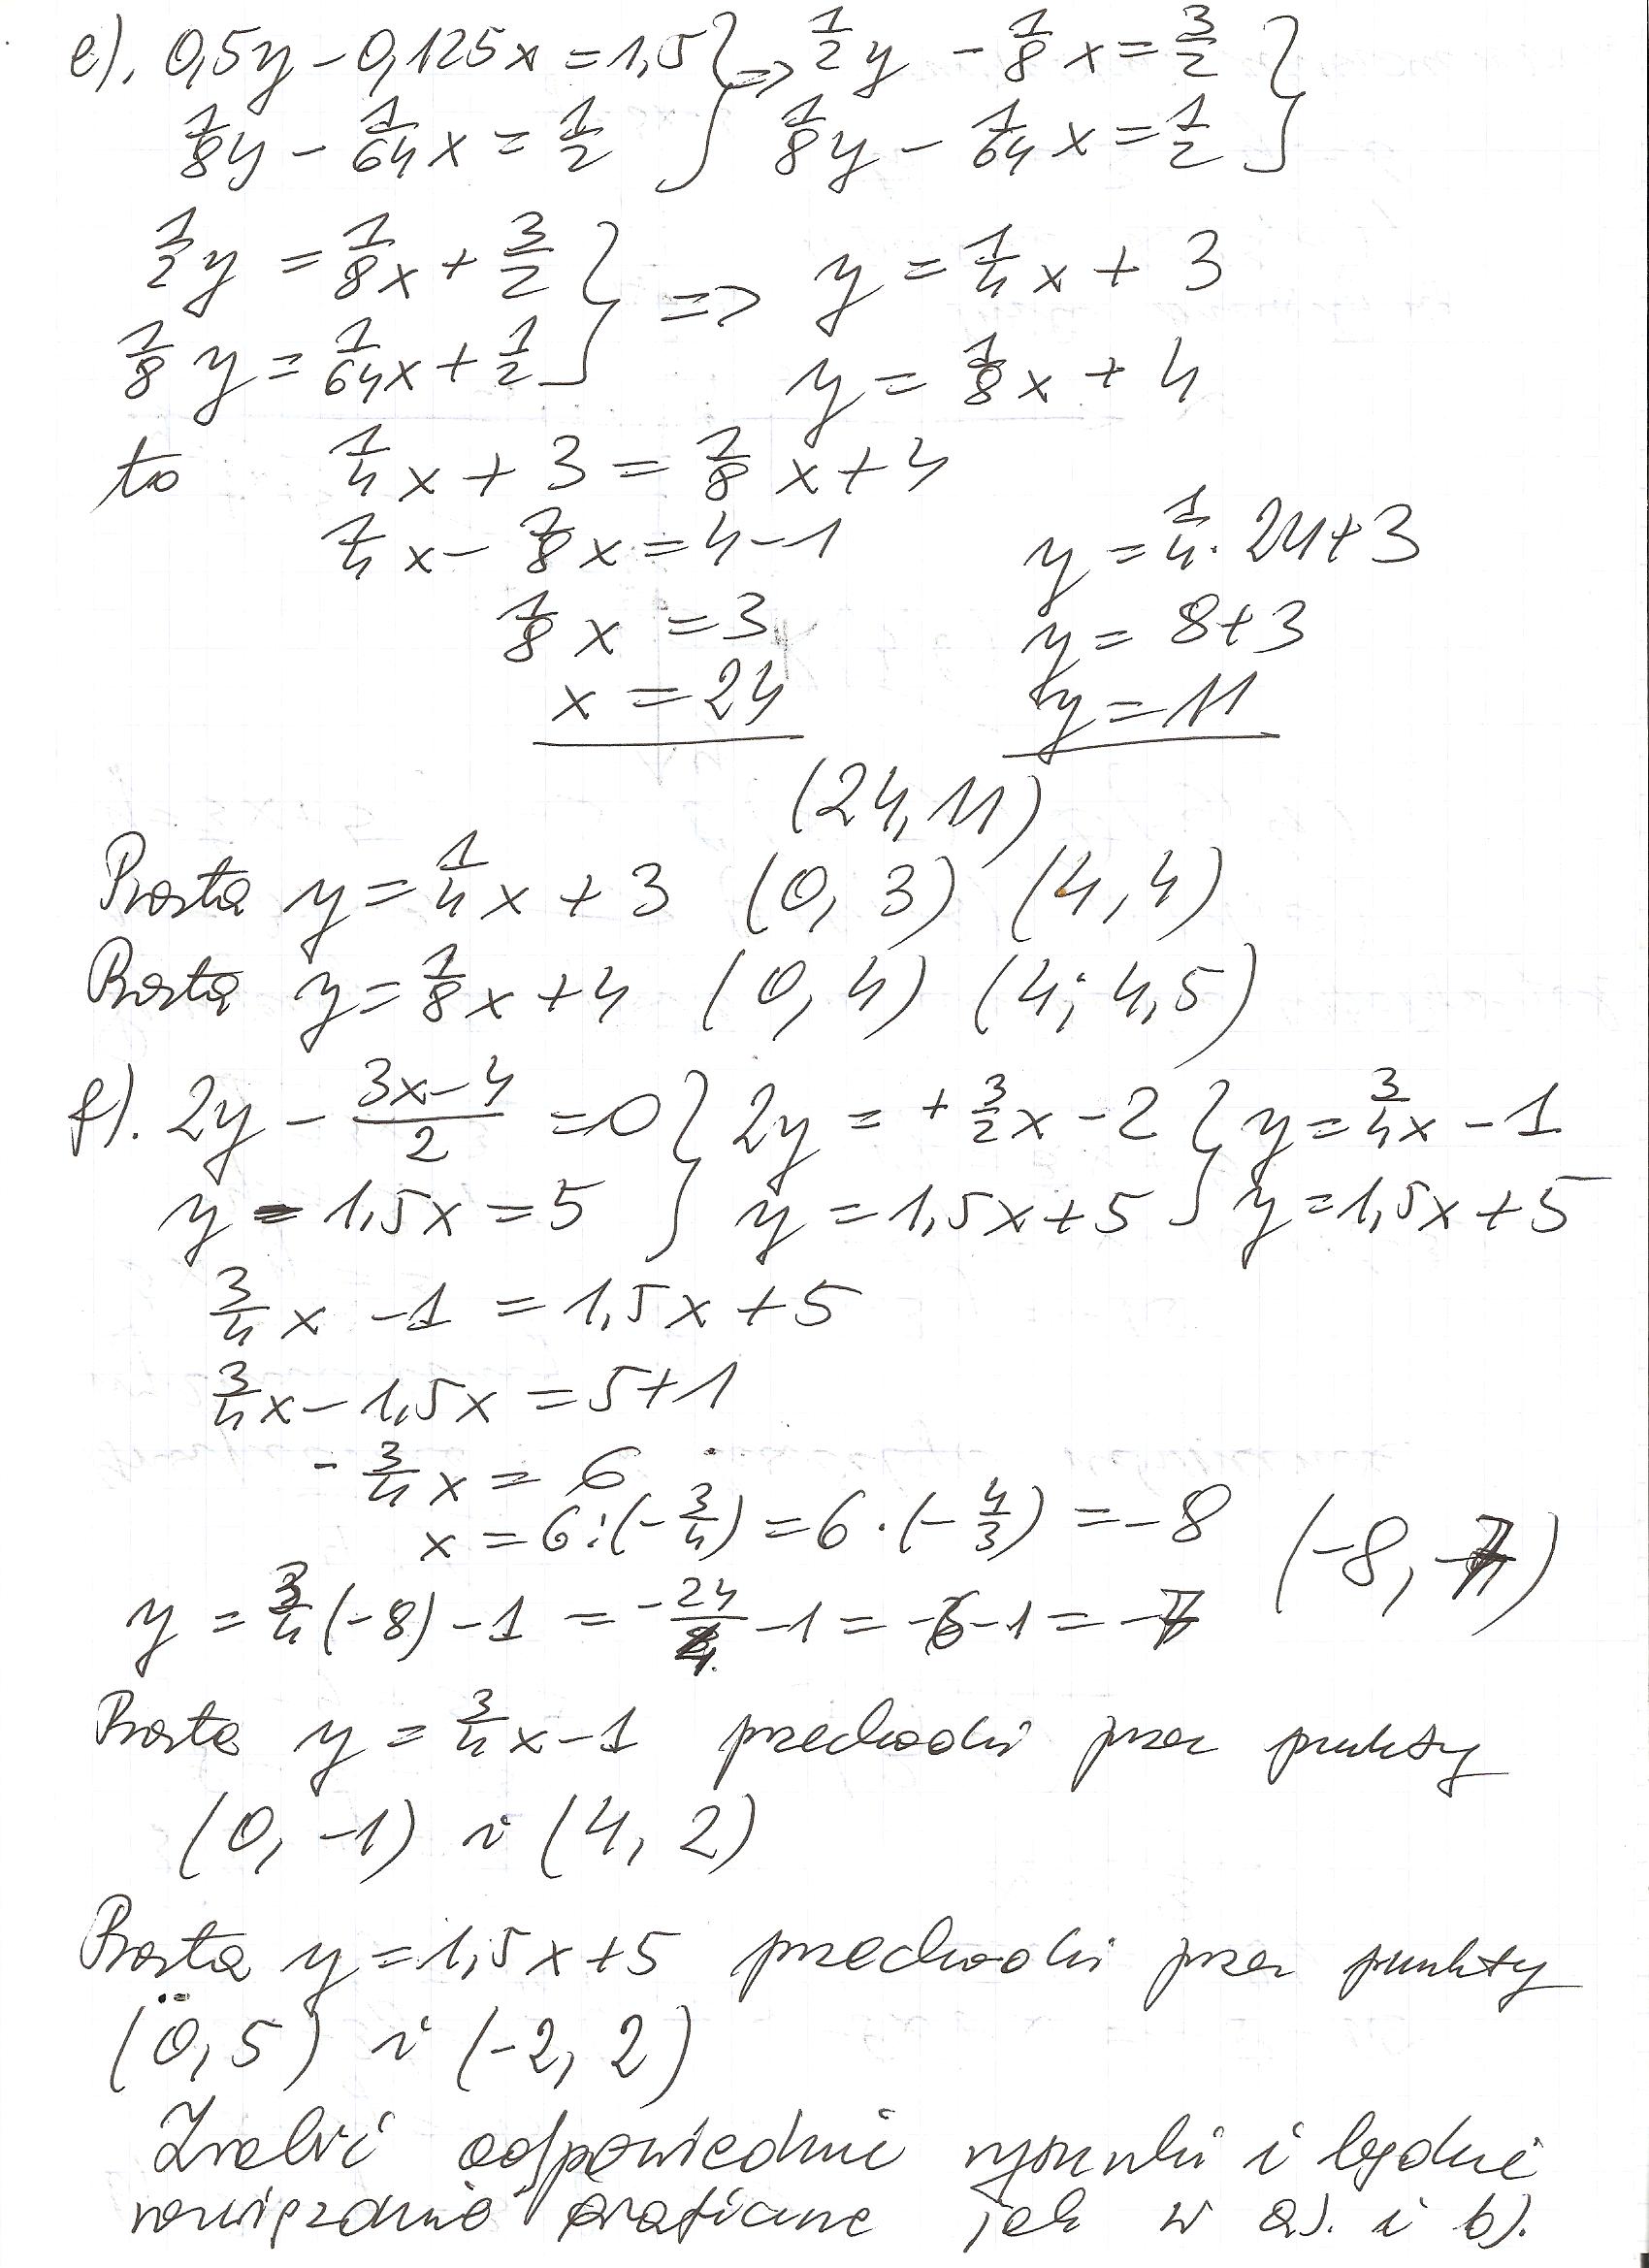 e). 0,5y - 0,125x = 1,5 } => 1/2 y - 1/8 x = 3/2 }
1/8 y - 1/64 x = 1/2 } 1/8 y - 1/64 x = 1/2 }
1/2 y = 1/8 x + 3/2 } => y = 1/4 x + 3
1/8 y = 1/64 x + 1/2 } y = 1/8 x + 4
to 1/4 x + 3 = 1/8 x + 4
1/4 x - 1/8 x = 4 - 1 y = 1/4 · 24 + 3
1/8 x = 3 y = 8 + 3
x = 24 y = 11
(24, 11)
Prosta y = 1/4 x + 3 (0, 3) (4, 4)
Prosta y = 1/8 x + 4 (0, 4) (4; 4,5)
f). 2y - (3x-4)/2 = 0 } 2y = + 3/2 x - 2 } y = 3/4 x - 1
y - 1,5x = 5 } y = 1,5x + 5 } y = 1,5x + 5
3/4 x - 1 = 1,5x + 5
3/4 x - 1,5x = 5 + 1
- 3/4 x = 6
x = 6 : (- 3/4) = 6 · (- 4/3) = -8 (-8, -7)
y = 3/4 (-8) - 1 = - 24/4 - 1 = -6 - 1 = -7
Prosta y = 3/4 x - 1 przechodzi przez punkty
(0, -1) i (4, 2)
Prosta y = 1,5x + 5 przechodzi przez punkty
(0, 5) i (-2, 2)
Zrobić odpowiednie rysunki i będzie
rozwiązanie graficzne jak w a). i b).